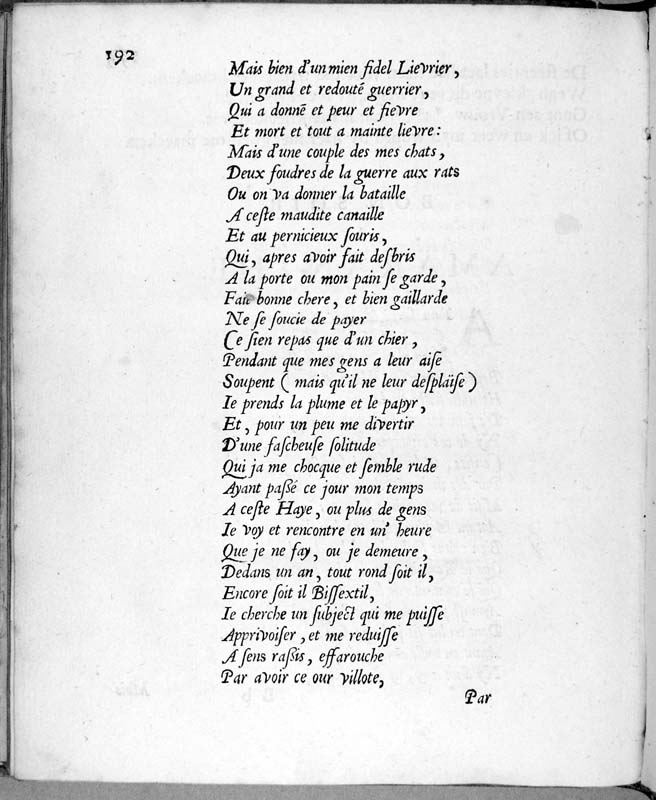 192
Mais bien d'un mien fidel Lievrier,
Un grand et redouté guerrier,
Qui a donnē et peur et fievre
Et mort et tout a mainte lievre:
Mais d'une couple des mes chats,
Deux foudres de la guerre aux rats
Ou on va donner la bataille
A ceſte maudite canaille
Et au pernicieux ſouris,
Qui, apres avoir fait deſbris
A la porte ou mon pain ſe garde,
Fait bonne chere, et bien gaillarde
Ne ſe ſoucie de payer
Ce ſien repas que d'un chier,
Pendant que mes gens a leur aiſe
Soupent ( mais qu'il ne leur deſplaïſe )
Ie prends la plume et le papyr,
Et, pour un peu me divertir
D'une faſcheuſe ſolitude
Qui ja me chocque et ſemble rude
Ayant paßé ce jour mon temps
A ceſte Haye, ou plus de gens
Ie voy et rencontre en un' heure
Que je ne fay, ou je demeure,
Dedans un an, tout rond ſoit il,
Encore ſoit il Biſſextil,
Ie cherche un ſubject qui me puiſſe
Apprivoiſer, et me reduiſſe
A ſens raßis, effarouche
Par avoir ce our villote,
Par